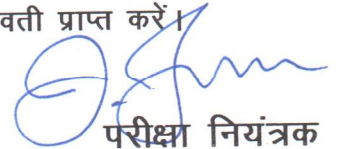 वती प्राप्त करें।
परीक्षा नियंत्रक